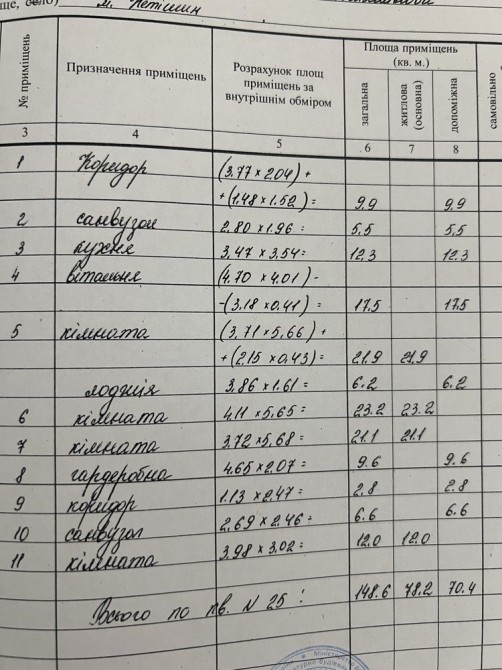 ще, село) м. Нетішин
№ приміщень
Призначення приміщень
Розрахунок площ приміщень за внутрішнім обміром
Площа приміщень (кв. м.)
загальна
житлова (основна)
допоміжна
самовільно
3 4 5 6 7 8
1 Коридор (3.77×2.04) +
+(1.48×1.52)= 9.9 9.9
2 санвузол 2.80×1.96= 5.5 5.5
3 кухня 3.47×3.54= 12.3 12.3
4 вітальня (4.70×4.01)-
-(3.18×0.41)= 17.5 17.5
5 кімната (3.71×5.66)+
+(2.15×0.43)= 21.9 21.9
лоджія 3.86×1.61= 6.2 6.2
6 кімната 4.11×5.65= 23.2 23.2
7 кімната 3.72×5.68= 21.1 21.1
8 гардеробна 4.65×2.07= 9.6 9.6
9 коридор 1.13×2.47= 2.8 2.8
10 санвузол 2.69×2.46= 6.6 6.6
11 кімната 3.98×3.02= 12.0 12.0
Всього по кв. N 25: 148.6 78.2 70.4